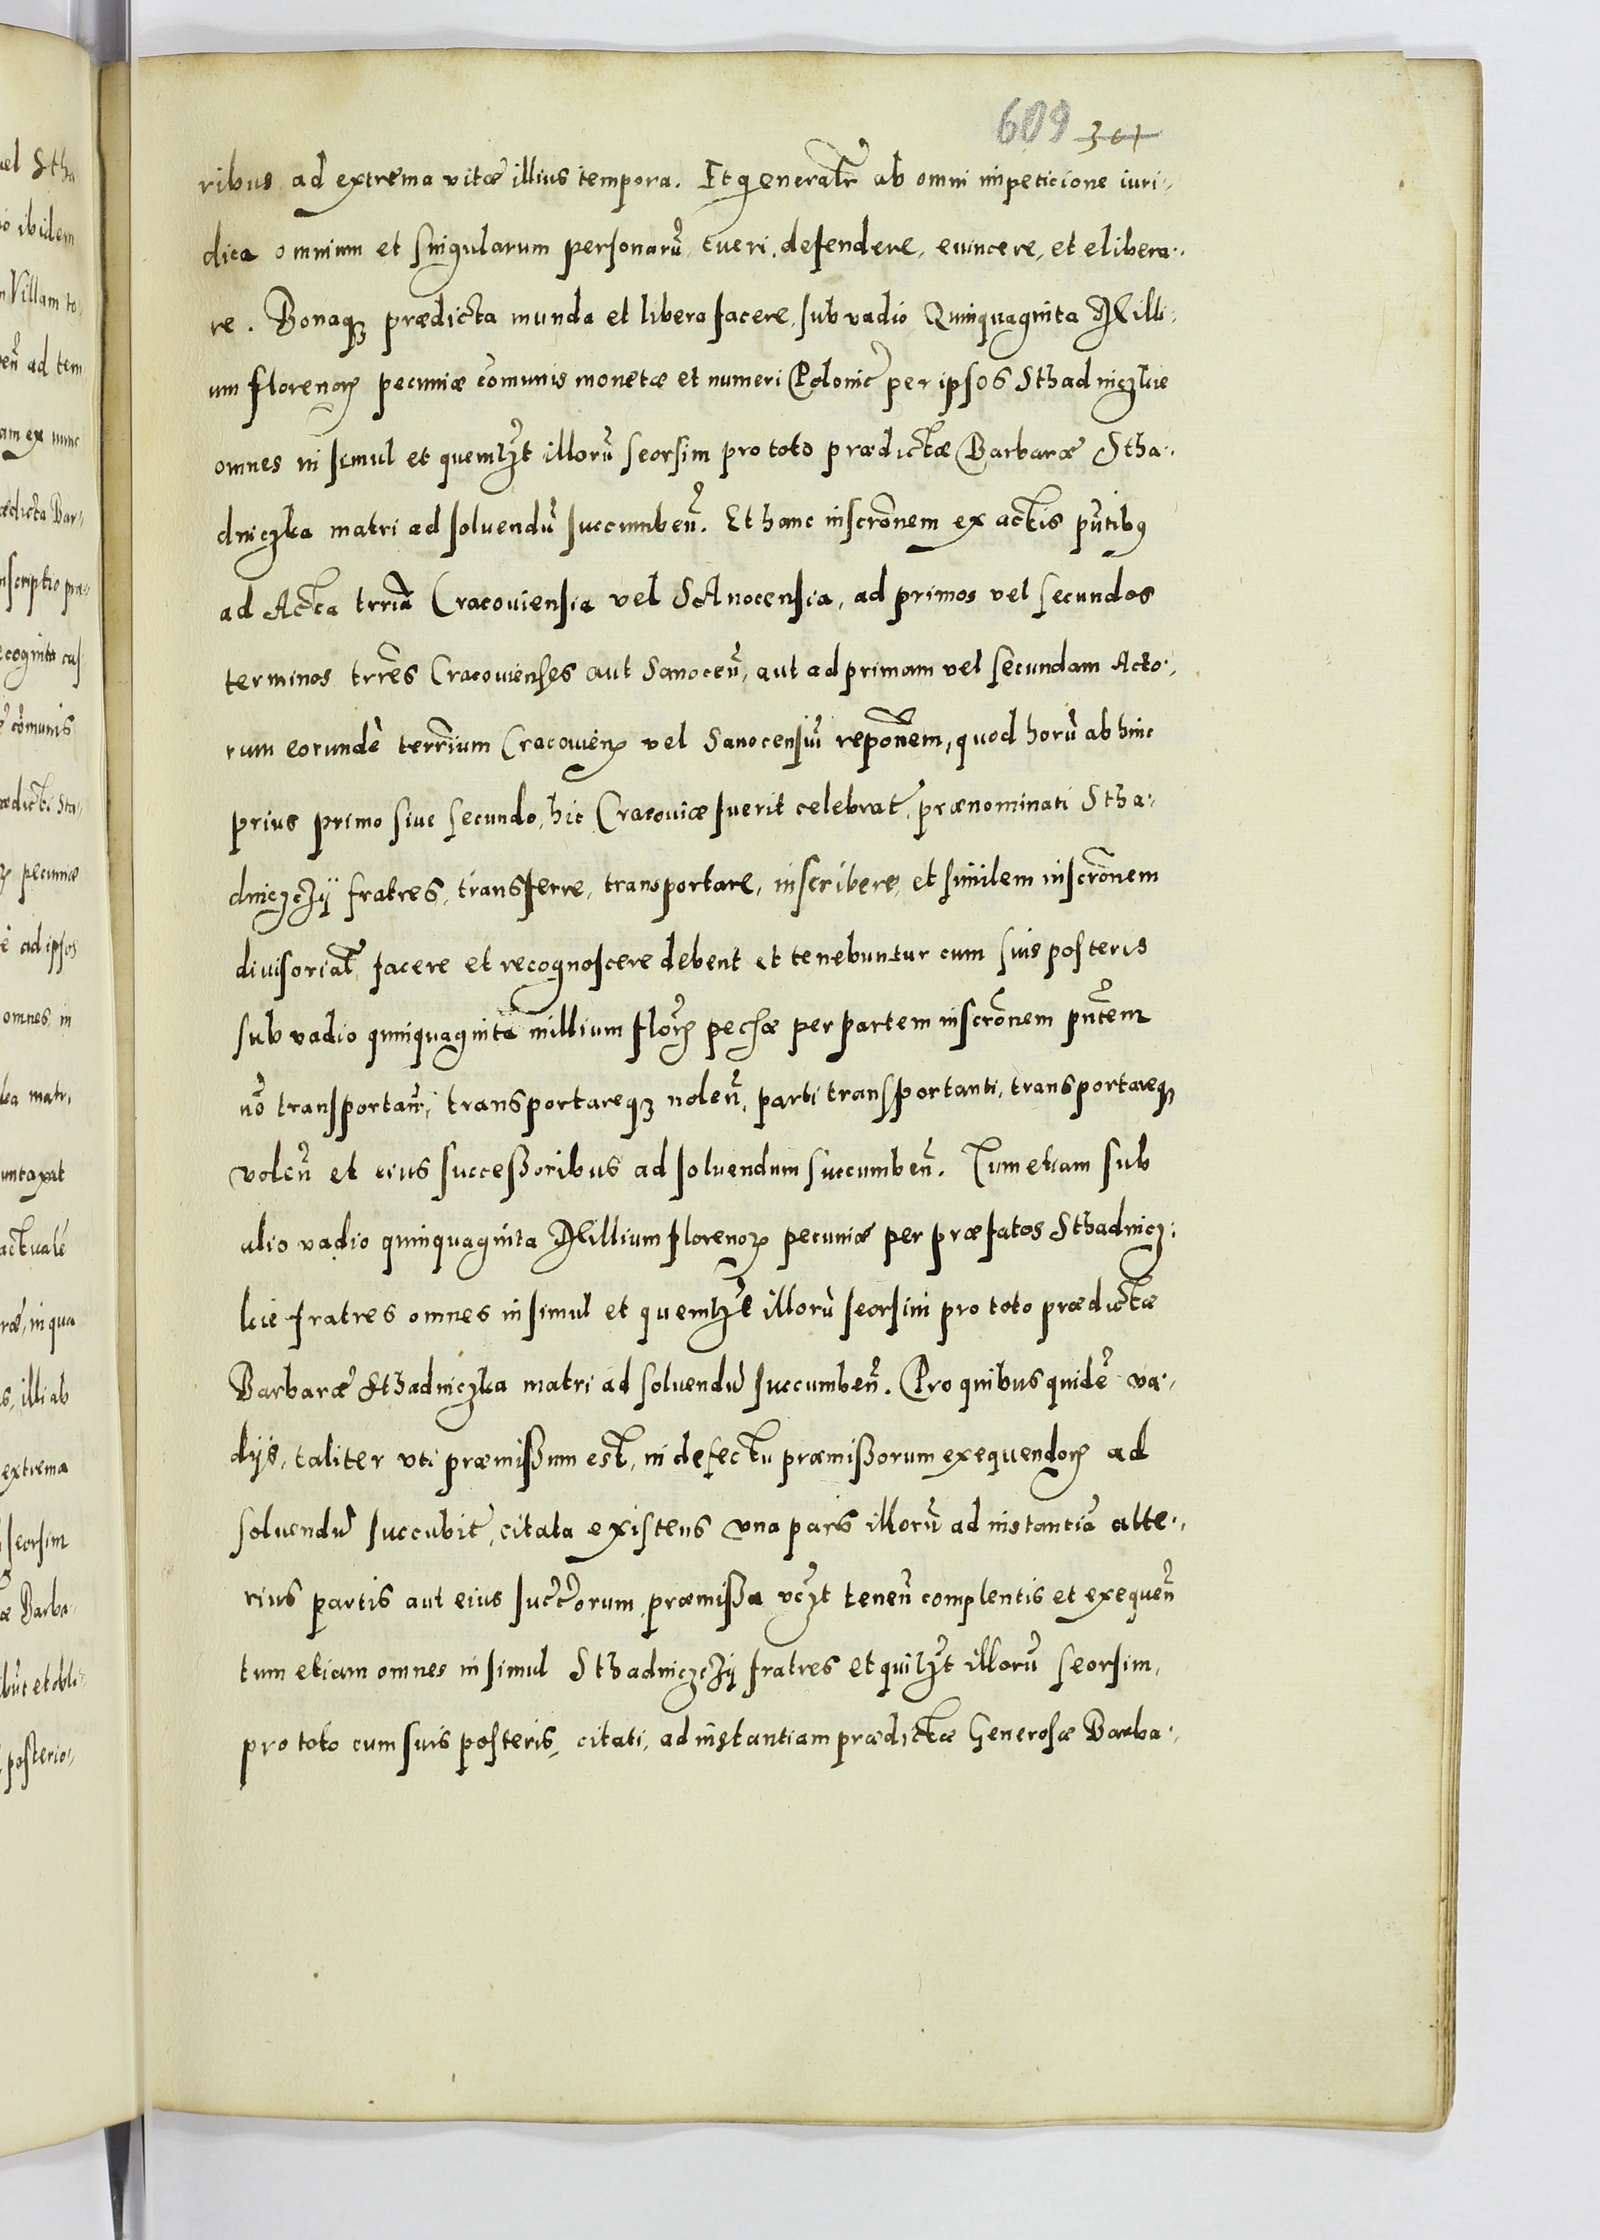 609 301
ribus ad extrema vitæ illius tempora. Et generalr̃ ab omni impeticione iuri-
dica omnium et singularum personarũ, tueri, defendere, evincere, et elibera-
re. Bonaqꝫ prædicta munda et libera facere, sub vadio Quinquaginta Milli-
um florenorꝝ pecuniæ cõmunis monetæ et numeri Polonic̃ per ipsos Sthadniczkie
omnes in simul et quemlꝫt illorũ seorsim pro toto prædictæ Barbaræ Stha-
dniczka matri ad soluendũ succumbeñ. Et hanc inscrõnem ex actis pñtibꝰ
ad Acta trria Cracouiensia vel SAnocensia, ad primos vel secundos
terminos trres Cracouienses aut Sanoceñ, aut ad primam vel secundam Acto-
rum eorundẽ terrium Cracouienꝝ vel Sanocensiũ repõnem, quod horũ ab hinc
prius primo siue secundo, hic Cracouiæ fuerit celebrat̃, prænominati Stha-
dniczcẏ fratres, transferre, transportare, inscribere, et similem inscrõnem
diuisorialẽ facere et recognoscere debent et tenebuntur cum suis posteris
sub vadio quinquaginta millium florꝝ pec̃hæ per partem inscrõnem pñtem
nõ transportañ, transportareqꝫ noleñ, parti transportanti, transportareqꝫ
voleñ et eius successoribus ad soluendum succumbeñ. Tum etiam sub
alio vadio quinquaginta Millium florenoꝝ pecuniæ per præfatos Sthadnicz-
kie fratres omnes in simul et quemlꝫt illorũ seorsim pro toto prædictæ
Barbaræ Sthadniczka matri ad soluendũ succumbeñ. Pro quibus quidẽ va-
dijs, taliter vti præmissum est, in defectu præmissorum exequendorꝝ ad
soluendũ succubit̃, citata existens vna pars illorũ ad instantiã alte-
rius partis aut eius succ̃orum, præmissa vtꝫt teneñ complentis et exequeñ
tum etiam omnes in simul Sthadniczcẏ fratres et quilꝫt illorũ seorsim,
pro toto cum suis posteris, citati, ad instantiam prædictæ Generosæ Barba-